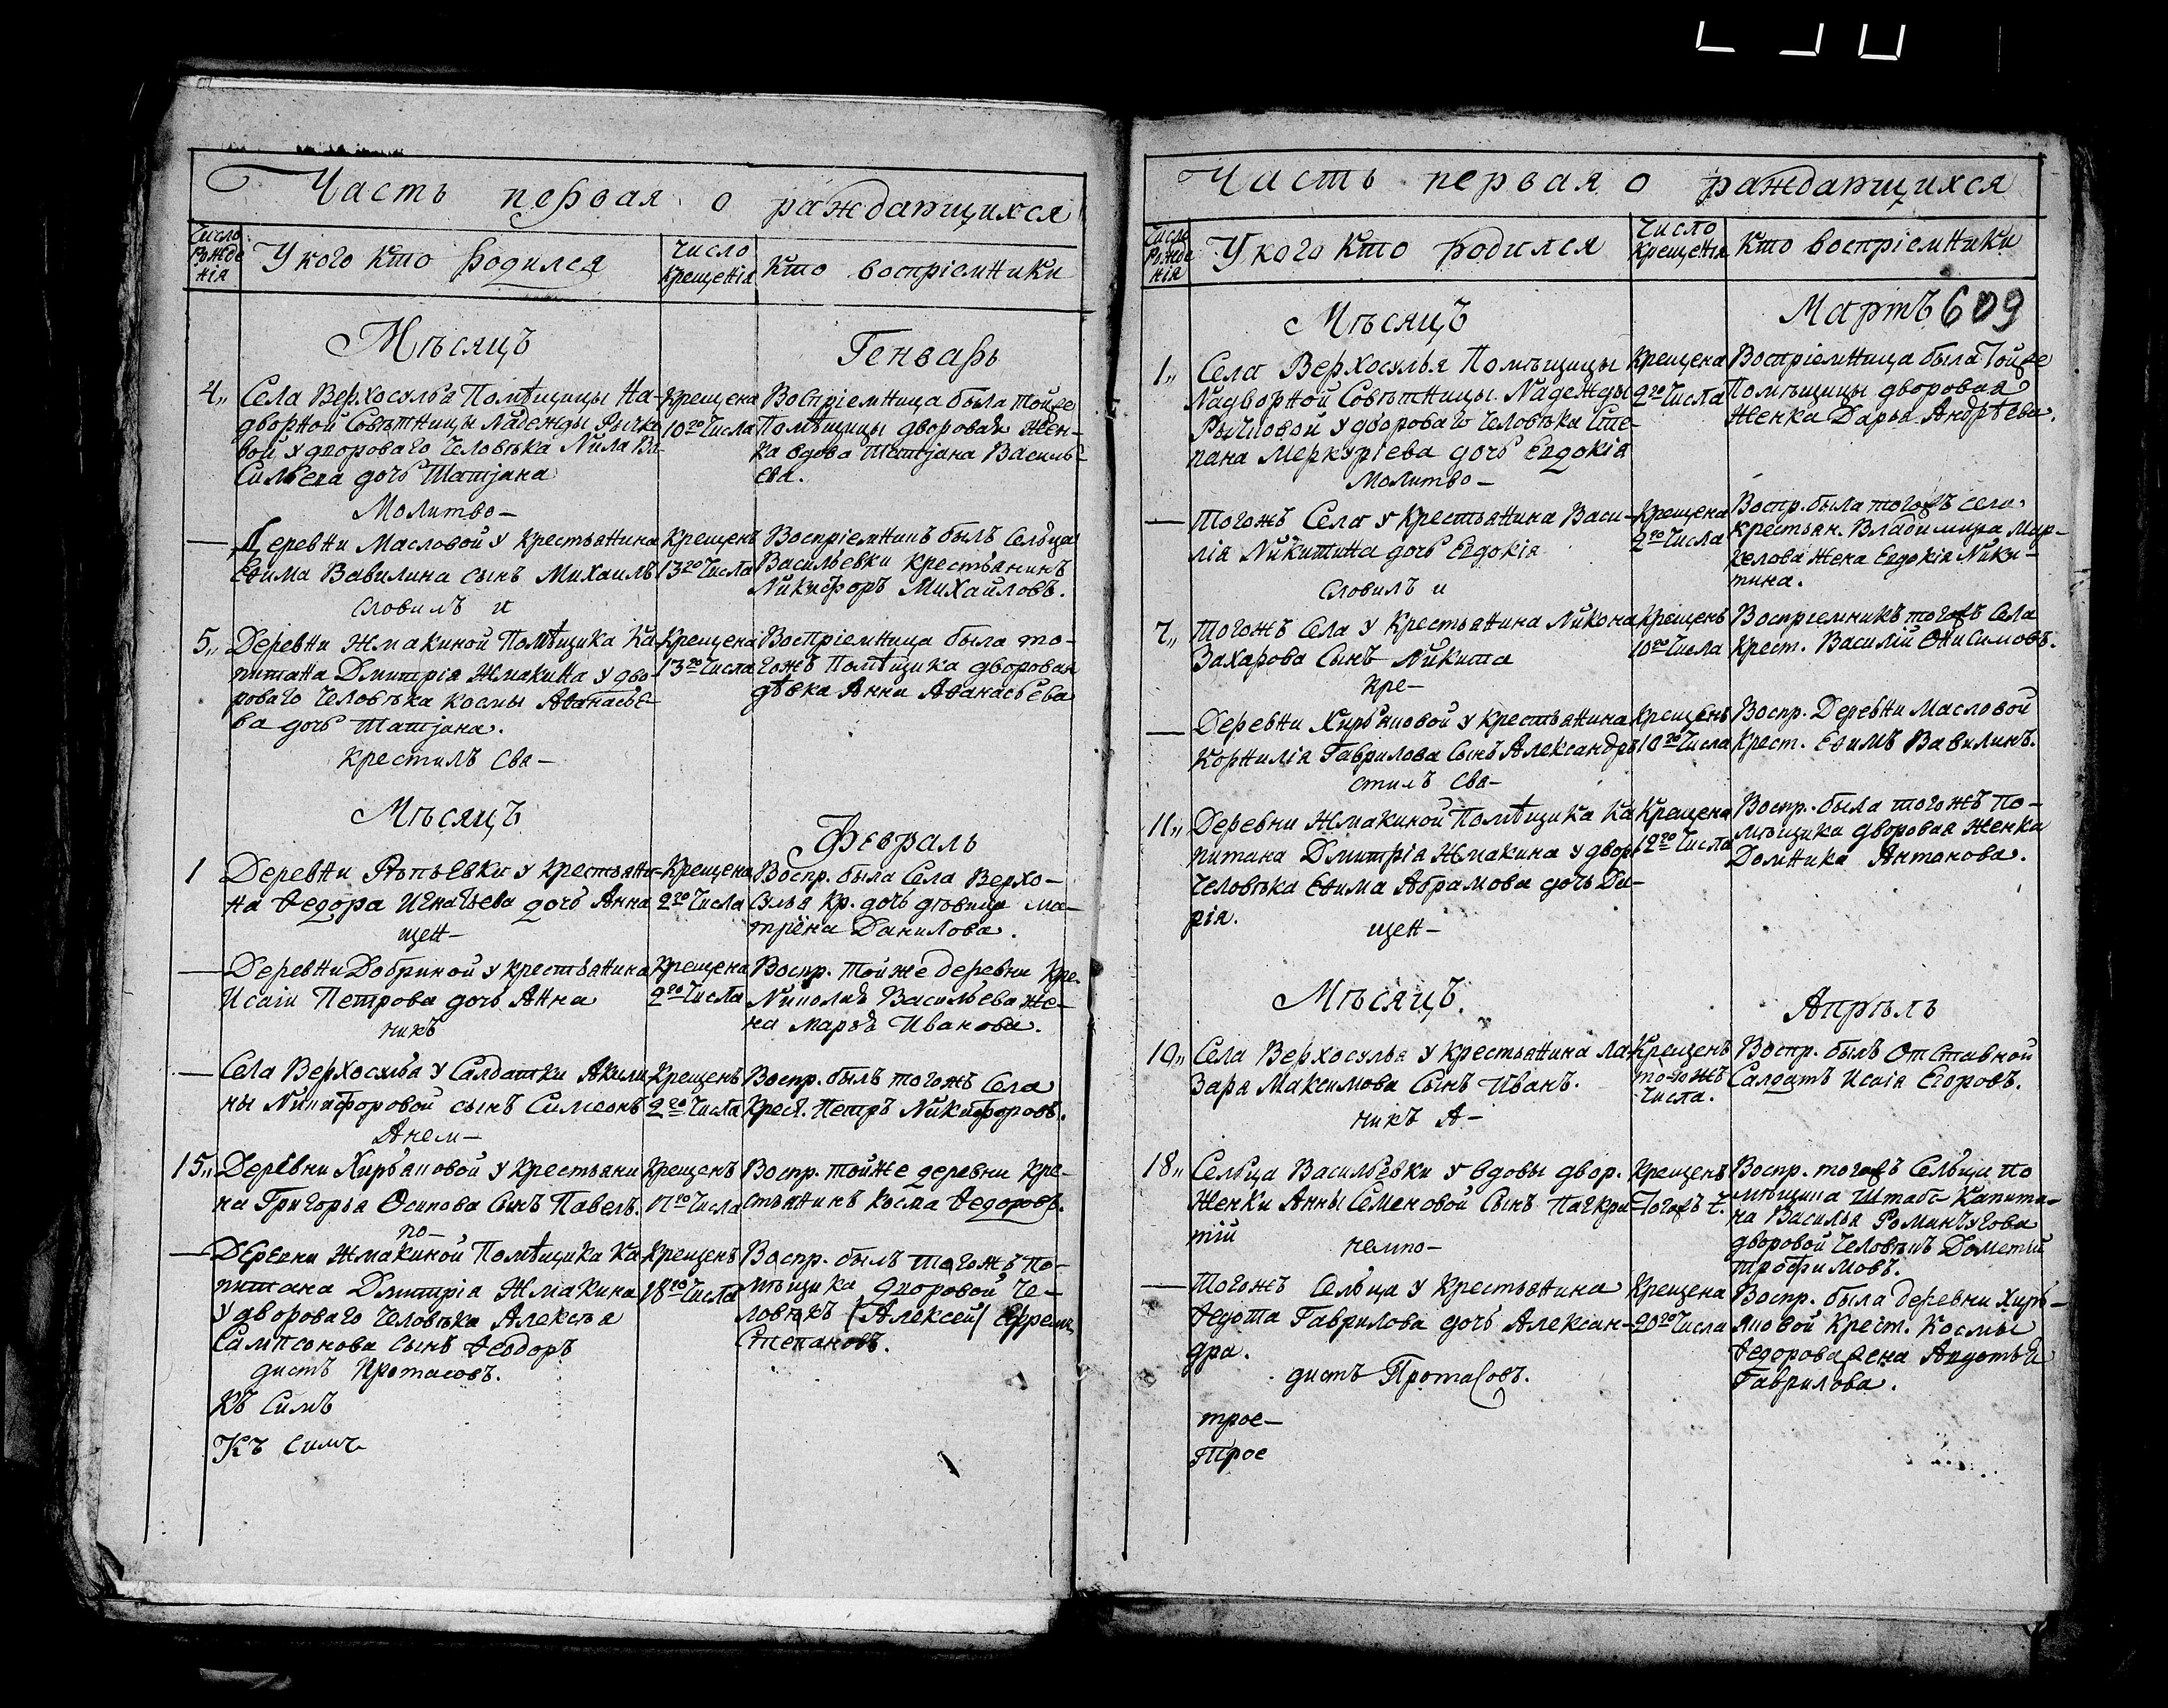 Часть первая о раждающихся
Число рожденія
У кого кто родился
Число крещенія
Кто воспріемники
Мѣсяцъ
Генварь
4,,
Села Верхосулья Помѣщицы На-
дворной Совѣтницы Надежды Рычко
вой у двороваго человѣка Нила Ва-
сильева дочь Татіана
Крещена
10го Числа
Воспріемница была тойже
Помѣщицы дворовая жен-
ка вдова Татіана Василь-
ева.
Молитво-
— Деревни Масловой у крестьянина
Еѳима Вавилина сынъ Михаилъ
Крещенъ
13го Числа
Воспріемникъ былъ Сельца
Васильевки крестьянинъ
Никифоръ Михайловъ.
словилъ и
5,,
Деревни Жмакиной Помѣщика Ка-
питана Дмитрія Жмакина у дво-
роваго человѣка Космы Аѳанасье-
ва дочь Татіана.
Крещена
13го Числа
Воспріемница была то-
гожъ Помѣщика дворовая
дѣвка Анна Аѳанасьева
крестилъ Свя-
Мѣсяцъ
Февраль
1
Деревни Рѣпьевки у крестьяни-
на Ѳедора Игнатьева дочь Анна
Крещена
2го Числа
Воспр. была Села Верхо-
сулья Кр. дочь дѣвица Ма-
трёна Данилова.
щен-
— Деревни Добриной у крестьянина
Исаіи Петрова дочь Анна
Крещена
2го Числа
Воспр. тойже деревни Кре.
Николая Васильева же-
на Марѳа Иванова.
никъ
— Села Верхосулья у Салдатки Акили
ны Никифоровой сынъ Симеонъ
Крещенъ
2го Числа
Воспр. былъ тогожъ Села
Крест. Петръ Никифоровъ.
Анем-
15,,
Деревни Хирьяковой у крестьяни
на Григорья Осипова сынъ Павелъ.
Крещенъ
17го Числа
Воспр. тойже деревни Кре-
стьянинъ Косма Ѳедоровъ.
по-
— Деревни Жмакиной Помѣщика Ка
питана Дмитрія Жмакина
у двороваго человѣка Алексѣя
Сампсонова сынъ Ѳеодоръ
Крещенъ
18го Числа
Воспр. былъ тогожъ По-
мѣщика дворовой че-
ловѣкъ (Алексей) Ефремъ
Степановъ.
дистъ Протасовъ.
Къ симъ
Къ симъ
Часть первая о раждающихся
Число рожденія
У кого кто родился
Число крещенія
Кто воспріемники
Мѣсяцъ
Мартъ 609
1,,
Села Верхосулья Помѣщицы
Надворной Совѣтницы Надежды
Рычковой у двороваго человѣка Сте-
пана Меркурьева дочь Евдокія
Крещена
2го Числа
Воспріемница была Тойже
Помѣщицы дворовая
женка Дарья Андрѣева.
Молитво-
— Тогожъ Села у крестьянина Васи-
лія Никитина дочь Евдокія
Крещена
2го Числа
Воспр. была тогожъ села
крестьян. Владимира Мар-
келова жена Евдокія Ники-
тина.
словилъ и
7,,
Тогожъ Села у крестьянина Никона
Захарова Сынъ Никита
Крещенъ
10го Числа
Воспріемникъ тогожъ Села
Крест. Василій Онисимовъ.
кре-
— Деревни Хирьяковой у крестьянина
Корнилія Гаврилова сынъ Александръ
Крещенъ
10го Числа
Воспр. Деревни Масловой
Крест. Еѳимъ Вавилинъ.
стилъ свя-
11,,
Деревни Жмакиной Помѣщика Ка
питана Дмитрія Жмакина у двор.
человѣка Еѳима Абрамова дочь Да-
рія.
Крещена
12го Числа
Воспр. была тогожъ по-
мѣщика дворовая женка
Домника Антонова.
щен-
Мѣсяцъ
Апрѣль
10,,
Села Верхосулья у крестьянина Ла-
заря Максимова Сынъ Иванъ.
Крещенъ
тогожъ
Числа.
Воспр. былъ Отставной
Салдатъ Исаія Егоровъ.
никъ А-
18,,
Сельца Васильевки у вдовы двор.
женки Анны Семеновой Сынъ Панкра-
тій
Крещенъ
Тогожъ ч.
Воспр. тогожъ Сельца по
мѣщика Штабс Капита-
на Василья Романчукова
дворовой человѣкъ Дометій
Трофимовъ.
немпо-
— Тогожъ Сельца у крестьянина
Ѳедота Гаврилова дочь Алексан-
дра.
Крещена
20го Числа
Воспр. была деревни Хирь-
яковой Крест. Космы
Ѳедорова жена Авдотья
Гаврилова.
дистъ Протасовъ.
трое-
Трое